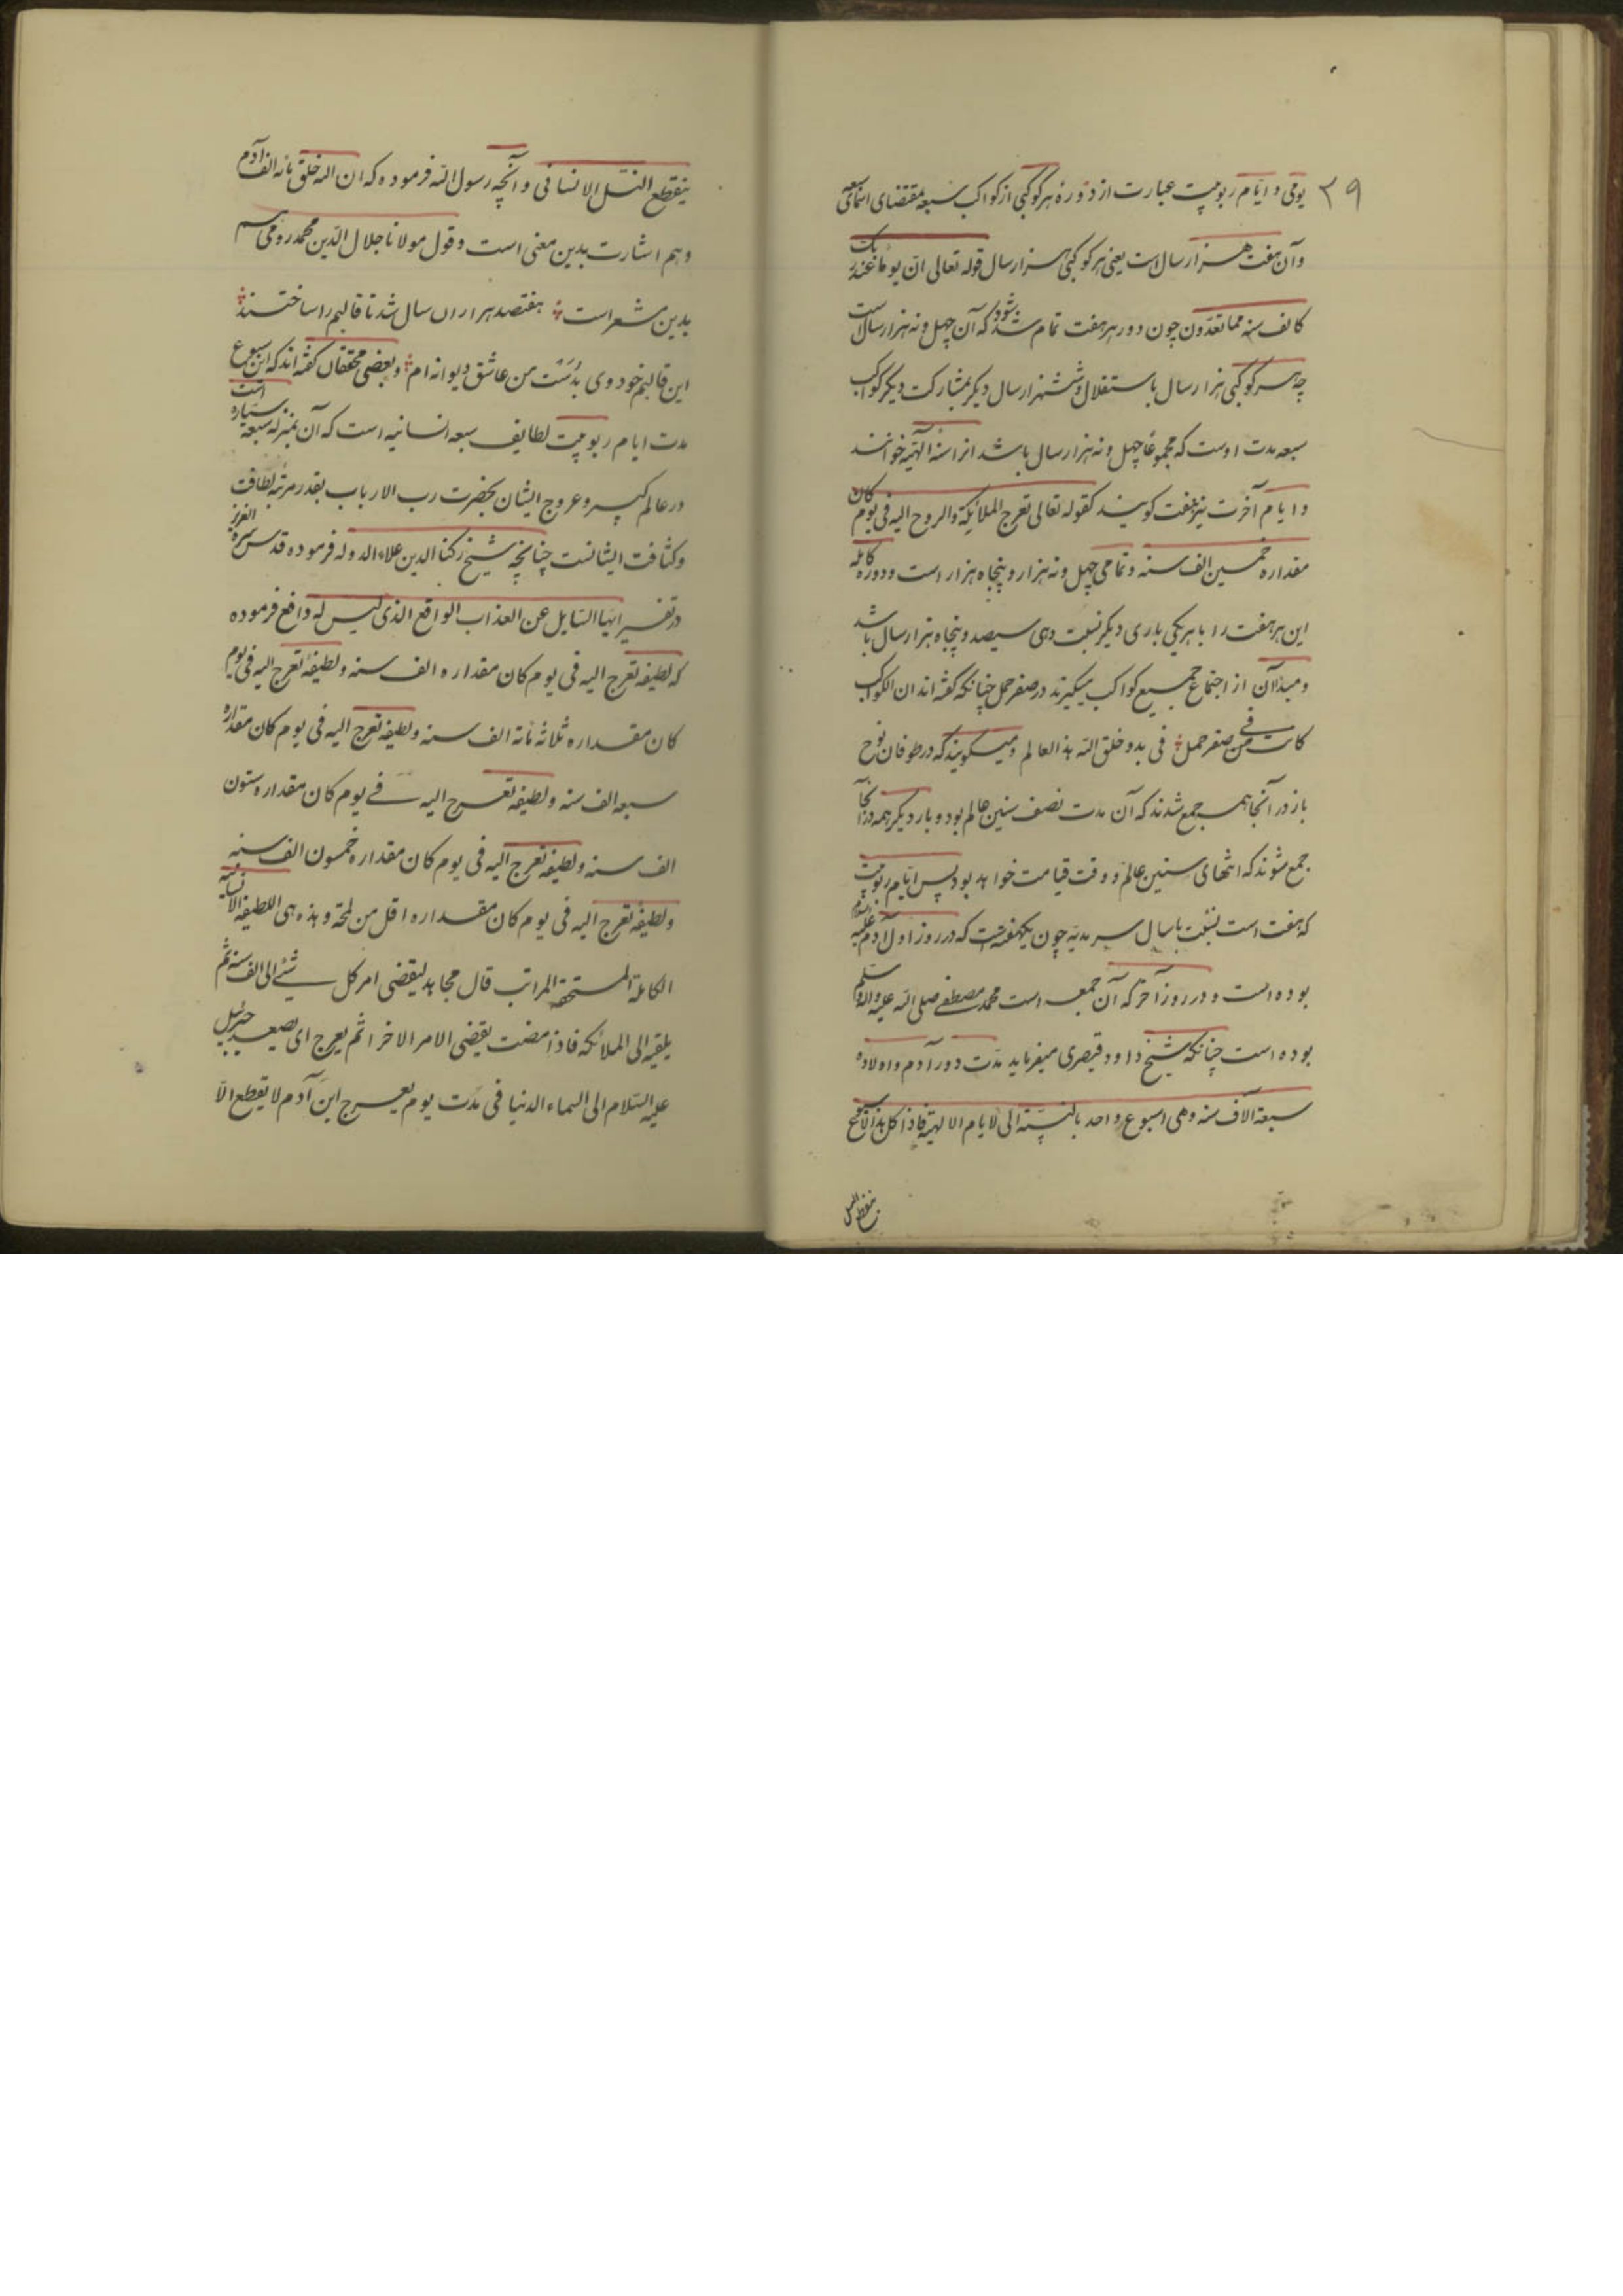 ۳۹
یومی و ایّام ربوبیت عبارت از دَورهٔ هر کوکبی از کواکب سبعه بمقتضای اسمای سبعه
و آن هفت هزار سال است یعنی هر کوکبی هزار سال قوله تعالی انّ یوما عند ربک
کالف سنه مما تعدّون چون دور هر هفت تمام شود که آن چهل و نه هزار سال است
چه هر کوکبی هزار سال باستقلال و شش هزار سال دیگر بمشارکت دیگر کواکب
سبعه مدت اوست که مجموعا چهل و نه هزار سال باشد انرا سنهٔ الهیّه خوانند
و ایام آخرت نیز هفت گویند کقوله تعالی تعرج الملائکة والروح الیه فی یوم کان
مقداره خمسین الف سنه و تمامی چهل و نه هزار و پنجاه هزار است و دوره کامله
این هر هفت را با هر یکی باری دیگر نسبت دهی سیصد و پنجاه هزار سال باشد
و مبدأ آن از اجتماع جمیع کواکب میگیرند در صفر حمل چنانکه گفته اند ان الکواکب
کانت فی صفر حمل فی بدو خلق الله هذا العالم و میگویند که در طوفان نوح
باز در آنجا همه جمع شدند که آن مدت نصف سنین عالم بود و بار دیگر همه در آنجا
جمع شوند که انتهای سنین عالم و وقت قیامت خواهد بود پس ایّام ربوبیت
که هفت است بنسبت با سال سرمدیه چون یکهفته است که در روز اول آدم علیه السلام
بوده است و در روز آخر که آن جمعه است محمد مصطفی صلی الله علیه و اله و سلم
بوده است چنانکه شیخ داود قیصری میفرماید مدّت دور آدم و اولاده
سبعة آلاف سنه و هی اسبوع واحد بالنسبة الی الایام الالهیة فاذا کمل هذا الاسبوع
ینقطع النسل
ینقطع النسل الانسانی و آنچه رسول الله فرموده که ان الله خلق مائه الف آدم
و هم اشارت بدین معنی است و قول مولانا جلال الدّین محمد رومی هم
بدین مشعر است هفتصد هزاران سال شد تا قالبم را ساختند
این قالبم خود وی بُدَست من عاشق دیوانه ام و بعضی محققان گفته اند که این اسبوع
مدت ایام ربوبیت لطایف سبعه انسانیه است که آن بمنزله سبعه سیاره است
در عالم کبیر و عروج ایشان بحضرت رب الارباب بقدر مرتبه لطافت
و کثافت ایشانست چنانچه شیخ رکنا الدین علاء الدوله فرموده قدس سره العزیز
در تفسیر ایها السایل عن العذاب الواقع الذی لیس له دافع فرموده
که لطیفه تعرج الیه فی یوم کان مقداره الف سنه و لطیفة تعرج الیه فی یوم
کان مقداره ثلاثه مائة الف سنه و لطیفه تعرج الیه فی یوم کان مقداره
سبعه الف سنه و لطیفه تعرج الیه فی یوم کان مقداره ستون
الف سنه و لطیفه تعرج الیه فی یوم کان مقداره خمسون الف سنه
و لطیفه تعرج الیه فی یوم کان مقداره اقل من لمحة و هذه هی اللطیفه الانسانیه
الکاملة المستحقه المراتب قال مجاهد لیقضی امر کل شئی الی الف سنه ثم
یلقیه الی الملائکه فاذا مضت یقضی الامر الاخر ثم یعرج ای یصعد جبرئیل
علیه السّلام الی السماء الدنیا فی مدّت یوم یعرج ابن آدم لا یقطع الّا